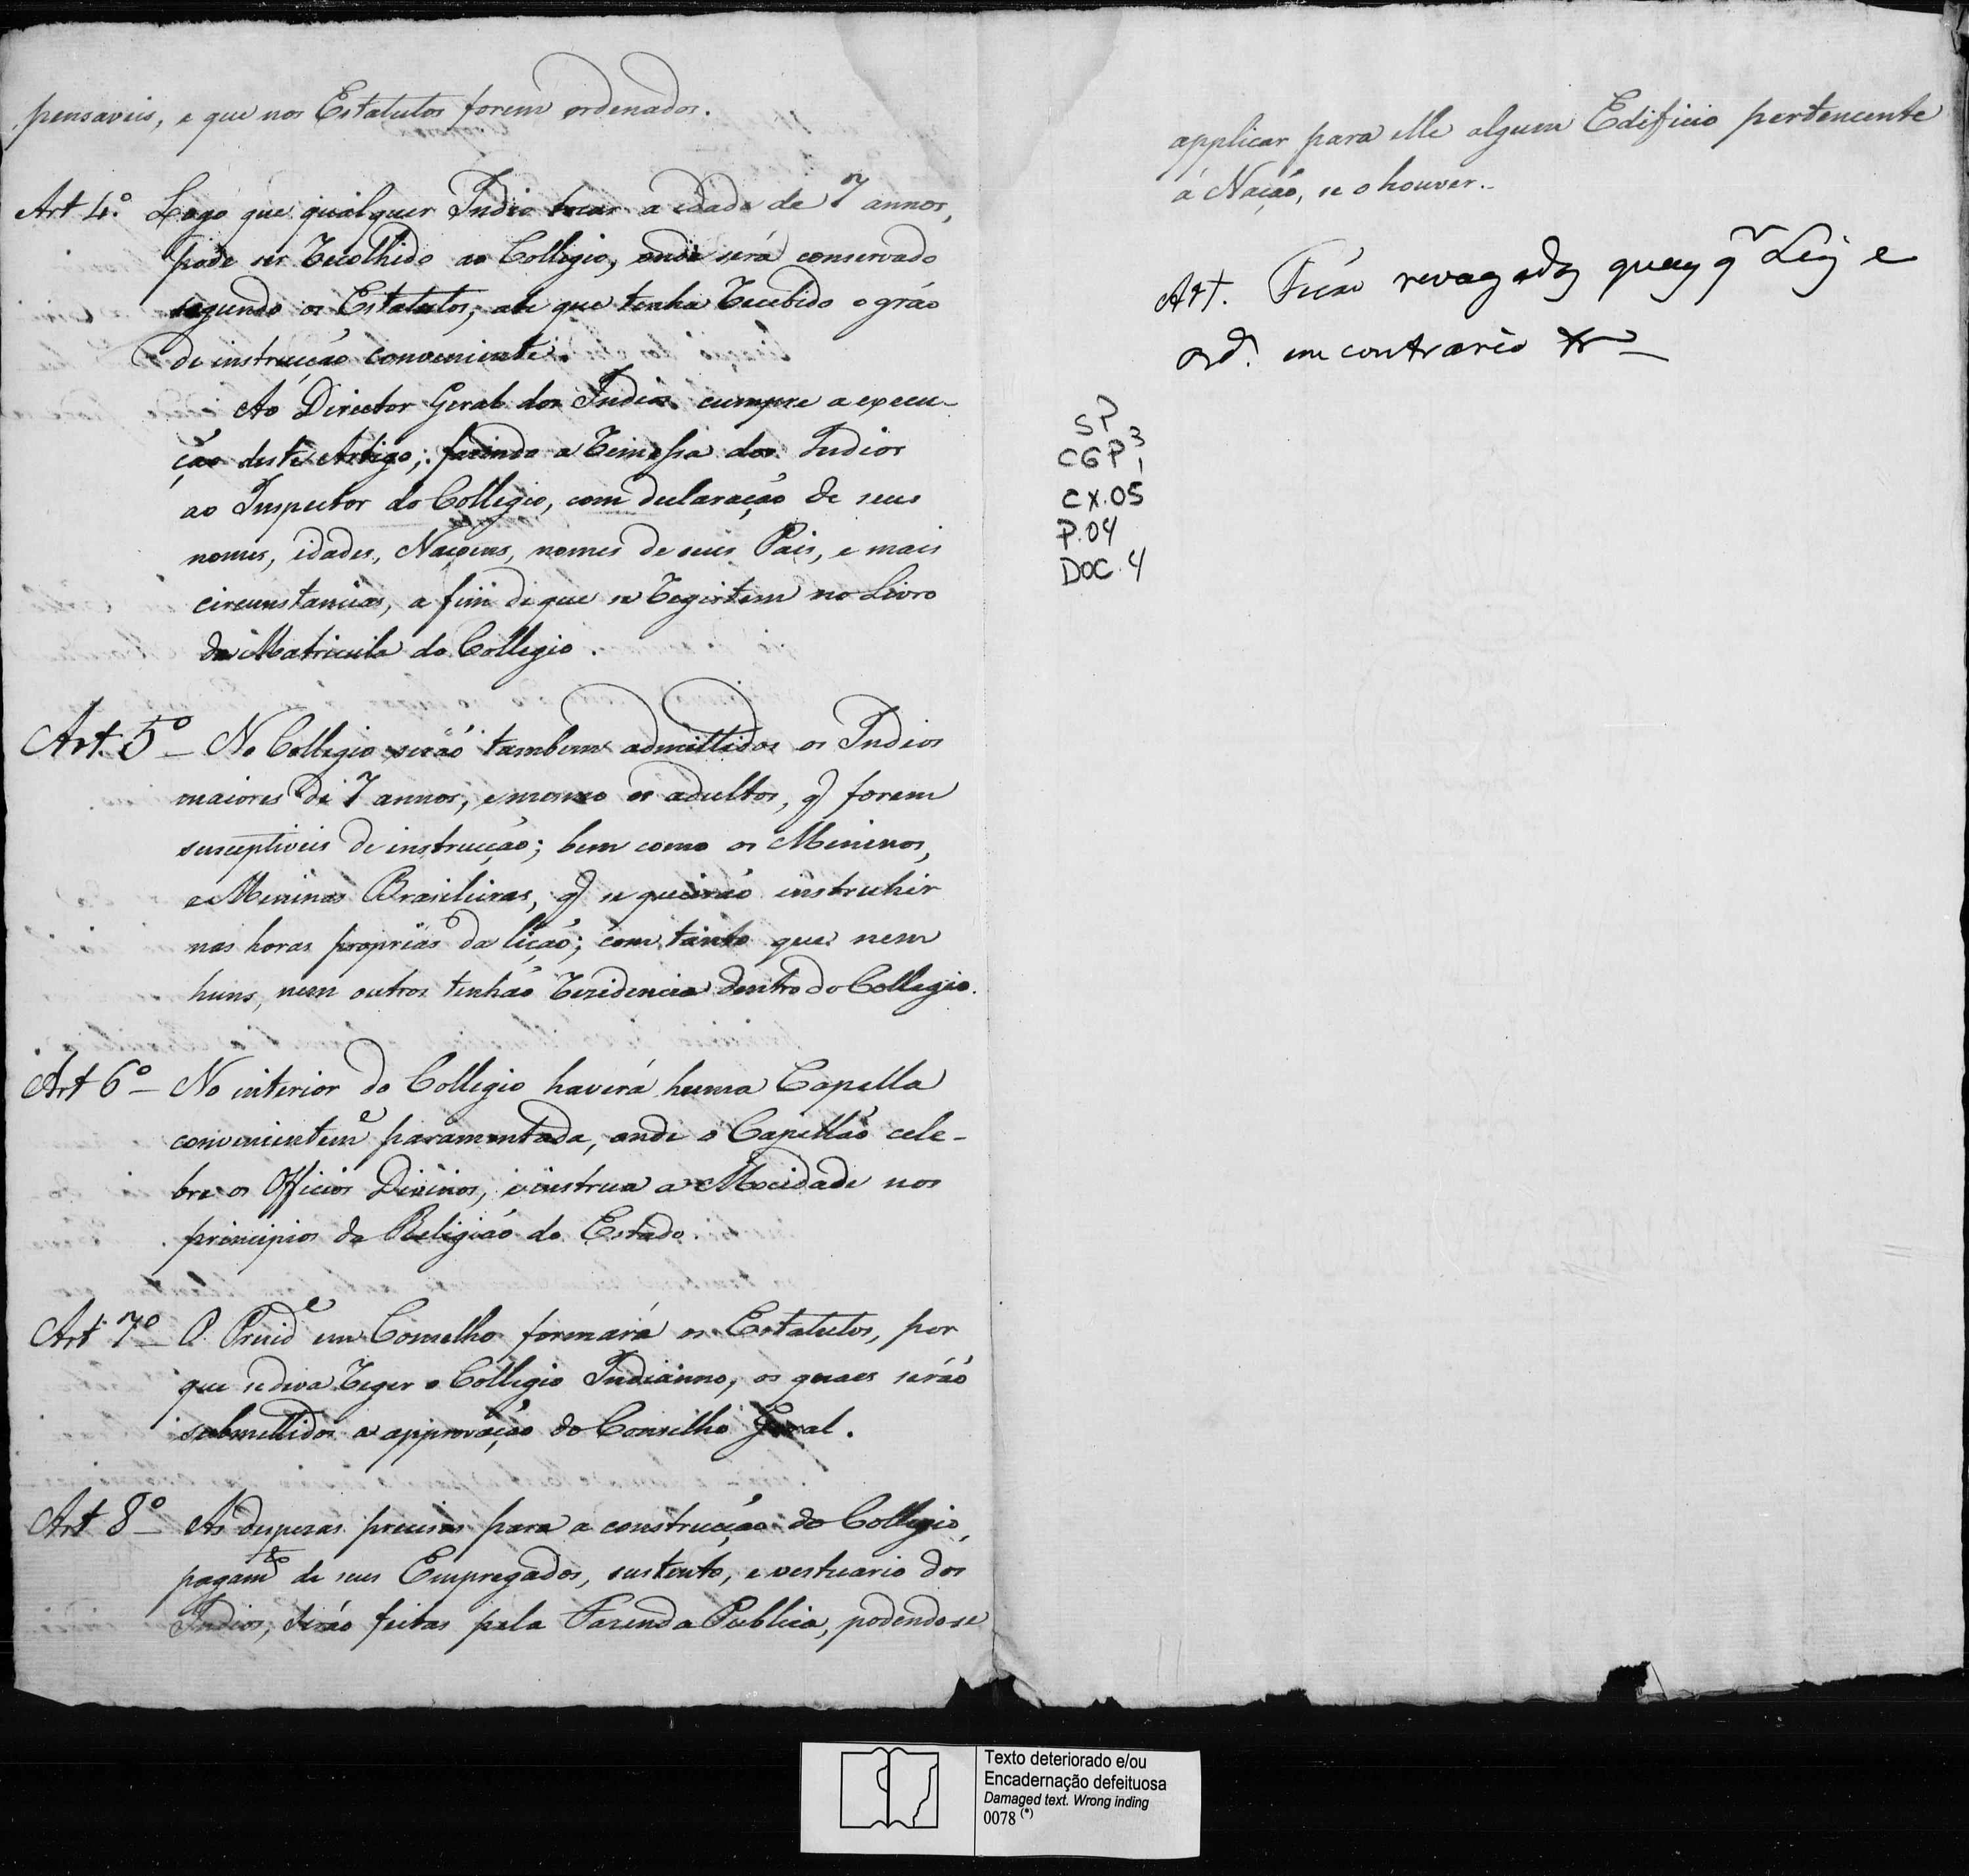 pensaveis, e que nos Estatutos forem ordenados.
Art 4.º Logo que qualquer Indio tocar a idade de 7 annos,
póde ser recolhido ao Collegio, onde será conservado
segundo os Estatutos, até que tenha recebido o gráo
de instrucção conveniente.
Ao Director Geral dos Indios cumpre a execu-
ção deste Artigo; fazendo a remessa dos Indios
ao Inspector do Collegio, com declaração de seus
nomes, idades, Naçoens, nomes de seus Pais, e mais
circunstancias, a fim de que se registem no Livro
da Matricula do Collegio.
Art. 5º - No Collegio serão tambem admittidos os Indios
maiores de 7 annos, e mesmo os adultos, q forem
susceptiveis de instrucção; bem como os Meninos,
e Meninas Brasileiras, q se queirão instruhir
nas horas proprias da lição; com tanto que nem
huns, nem outros tenhão rezidencia dentro do Collegio.
Art 6º - No interior do Collegio haverá huma Capella
convenientemᵉ paramentada, onde o Capellão cele-
bre os Officios Divinos, e instrua a Mocidade nos
principios da Religião do Estado.
Art 7º - O Presidᵉ em Conselho formará os Estatutos, por
que se deva reger o Collegio Indianno, os quaes serão
submettidos a approvação do Conselho Geral.
Art 8º - As despezas precisas para a construcção do Collegio,
pagamᵗᵒ de seus Empregados, sustento, e vestuario dos
Indios, serão feitas pela Fazenda Publica, podendo-se
applicar para elle algum Edificio pertencente
á Nação, se o houver.
Art. Ficão revogadas quaesqʳ Leis e
ord. em contrario
SP
CGP3
1
CX.05
P.04
DOC.4
Texto deteriorado e/ou
Encadernação defeituosa
Damaged text. Wrong inding
0078 (*)